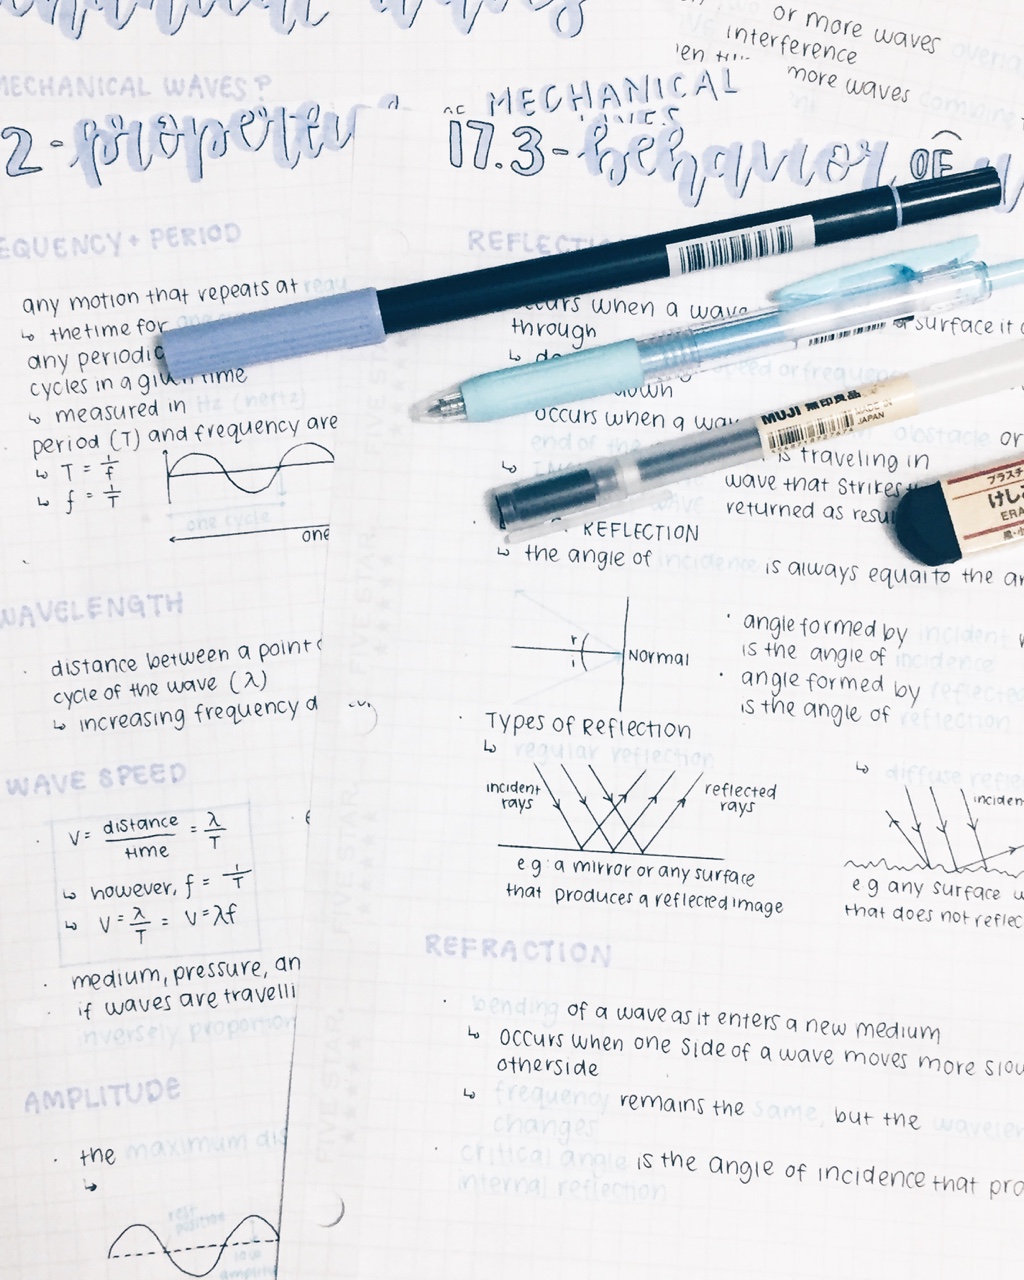 mechanical waves
MECHANICAL WAVES?
2 - properti
EQUENCY + PERIOD
any motion that repeats at regu
↳ the time for
any periodic
cycles in a given time
↳ measured in Hz (hertz)
period (T) and frequency are
↳ T = 1/f
↳ f = 1/T
one cycle
one
WAVELENGTH
distance between a point
cycle of the wave (λ)
↳ increasing frequency d
WAVE SPEED
V = distance/time = λ/T
↳ however, f = 1/T
↳ V = λ/T = V = λf
medium, pressure, an
if waves are travelli
inversely proportion
AMPLITUDE
the maximum dis
↳
rest position
low amplitu
or more waves overla
interference
more waves combine
MECHANICAL
17.3 - behavior OF
REFLECTI
occurs when a wave
through
surface it
↳
speed or frequenc
down
occurs when a wav
end of the
obstacle or
↳
is traveling in
wave that strikes
returned as resu
REFLECTION
↳ the angle of incidence is always equal to the an
r
i
Normal
· angle formed by incident
is the angle of incidence
· angle formed by reflected
is the angle of reflection
· Types of Reflection
↳ regular reflection
incident rays
reflected rays
e g a mirror or any surface
that produces a reflected image
↳ diffuse refle
inciden
e g any surface
that does not reflec
REFRACTION
· bending of a wave as it enters a new medium
↳ occurs when one side of a wave moves more slow
otherside
↳ frequency remains the same, but the wavelen
changes
· critical angle is the angle of incidence that pro
internal reflection
MUJI 無印良品
MADE IN JAPAN
プラスチ
けし
ERA
FIVE STAR.
FIVE STAR.
FIVE STAR.
FIVE STAR.